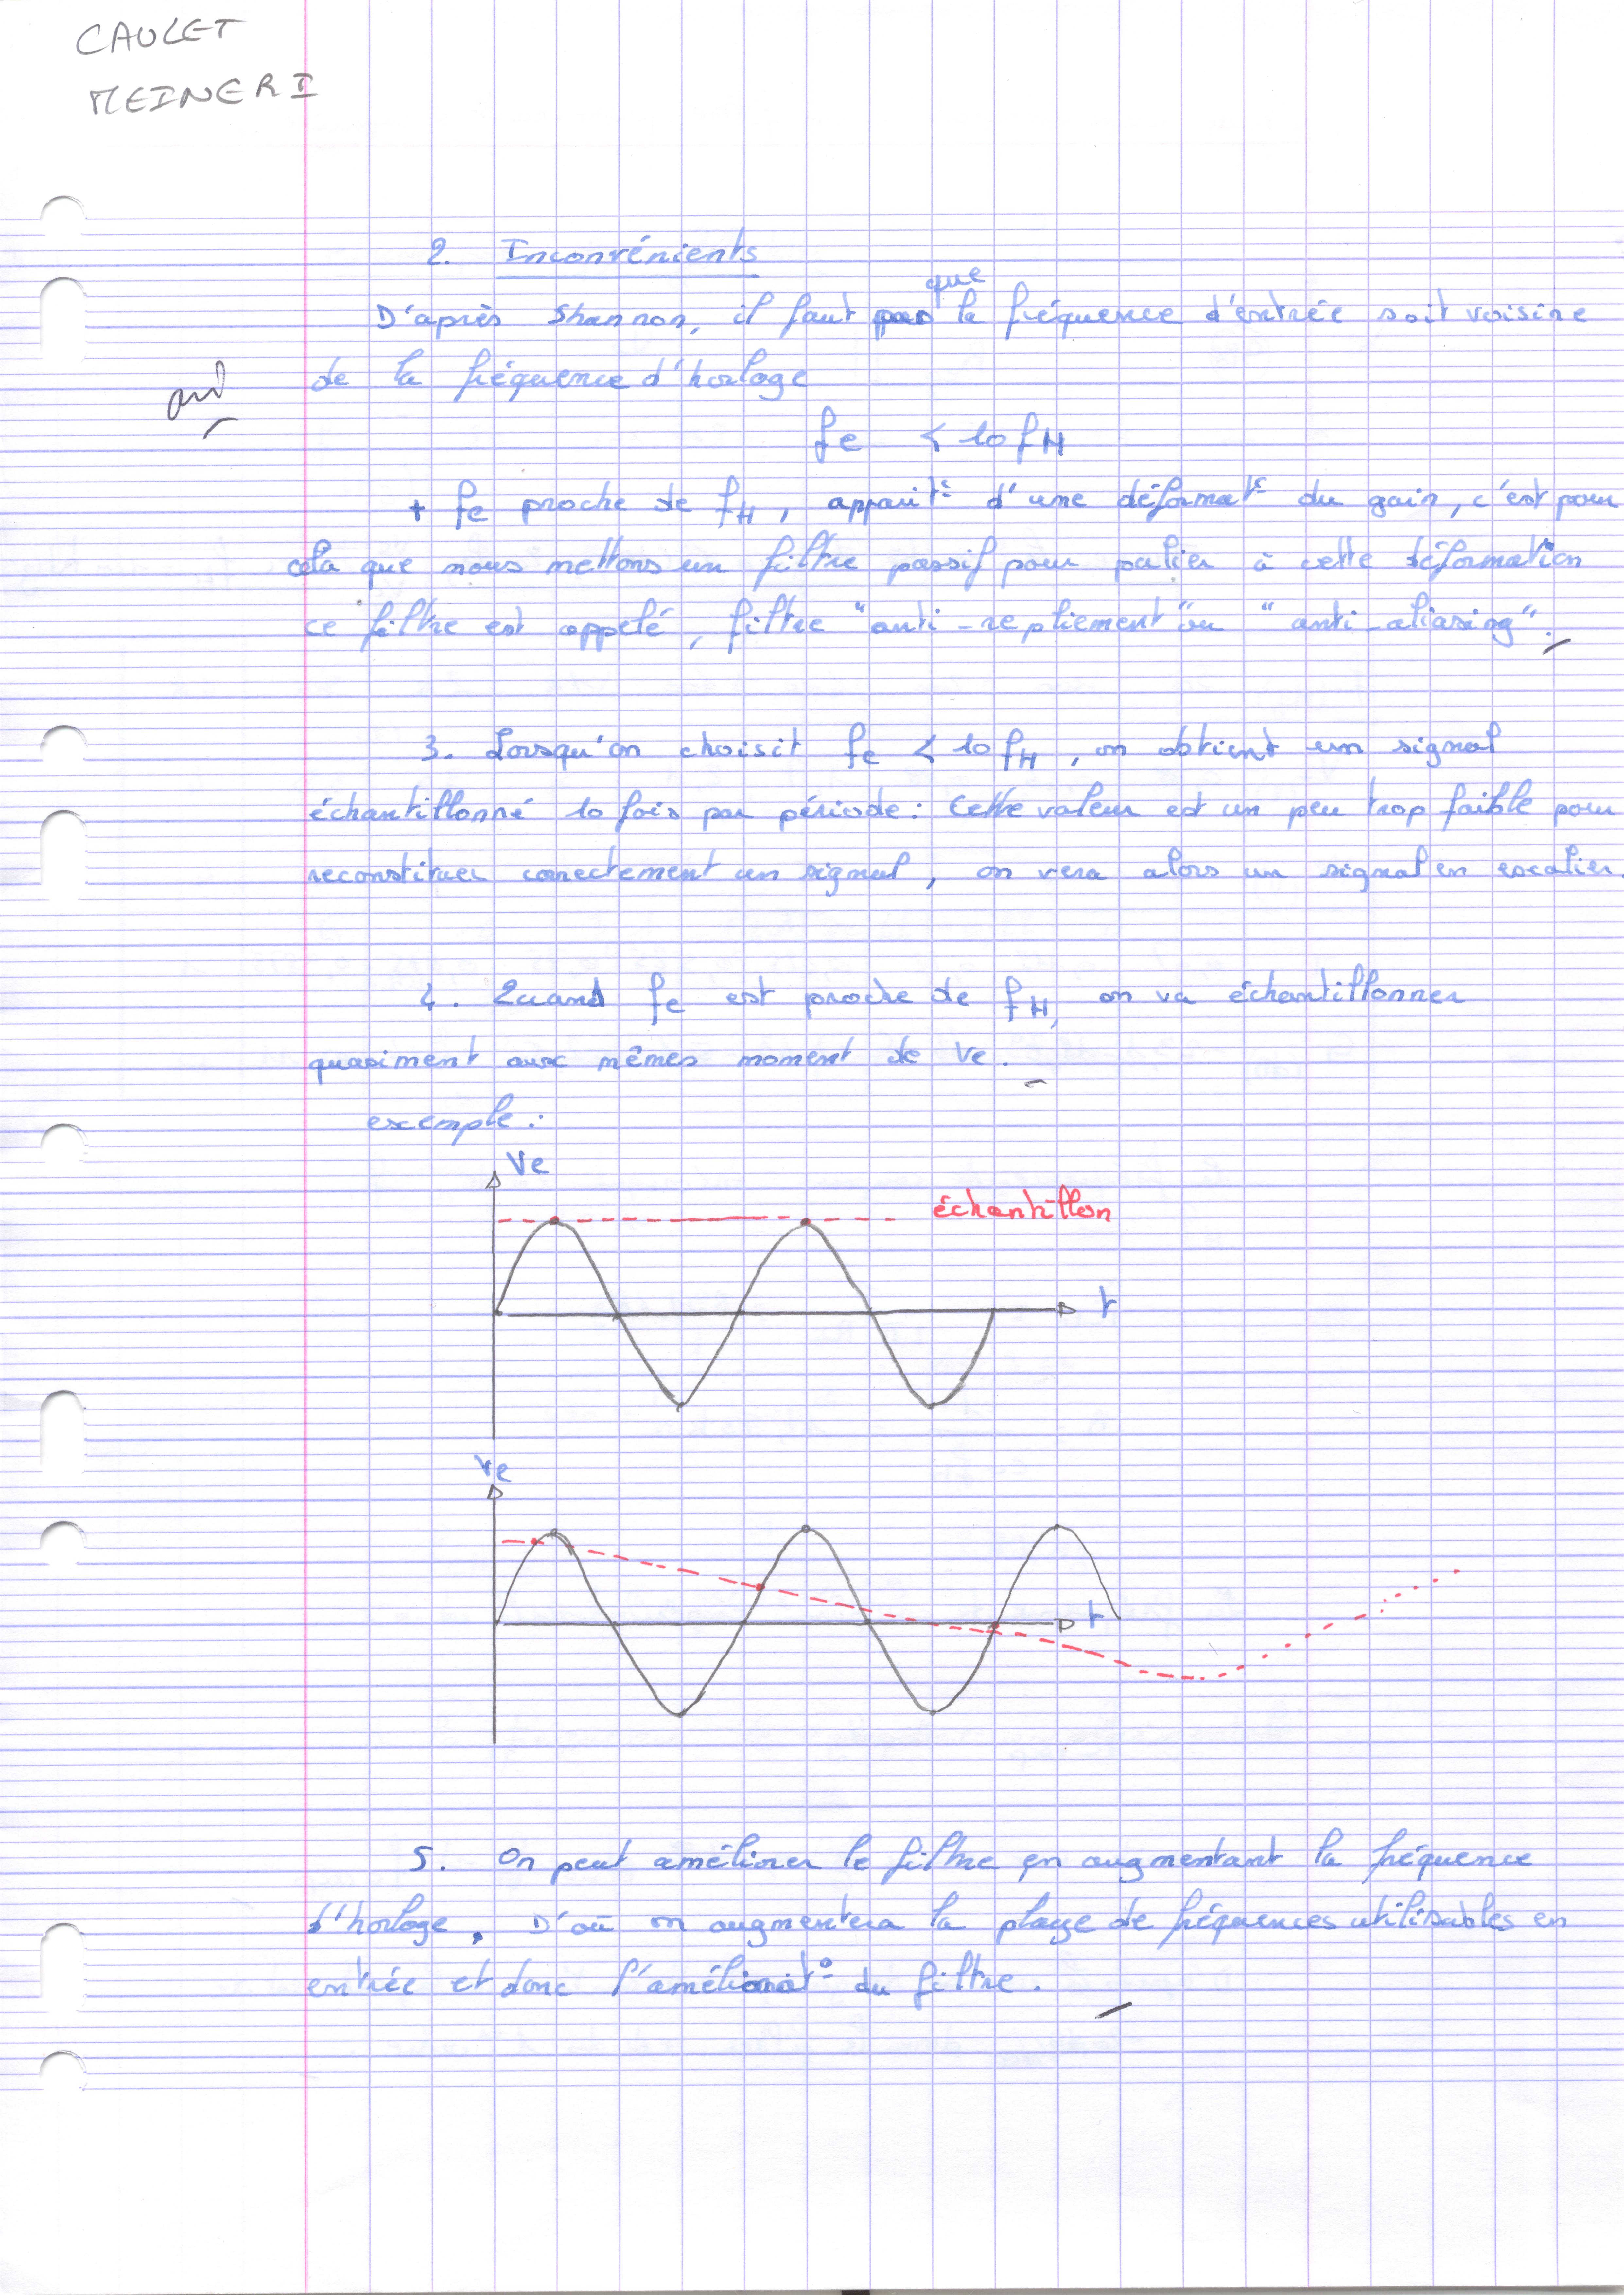 CAULET
MEINERI
2. Inconvénients
que
D'après Shannon, il faut pas la fréquence d'entrée soit voisine
de la fréquence d'horloge
fe < 10 fH
+ fe proche de fH, apparit° d'une déformat° du gain, c'est pour
cela que nous mettons un filtre passif pour palier à cette déformation
ce filtre est appelé, filtre "anti-repliement" ou "anti-aliasing".
3. Lorsqu'on choisit fe < 10 fH, on obtient un signal
échantillonné 10 fois par période: Cette valeur est un peu trop faible pour
reconstituer correctement un signal, on vera alors un signal en escalier.
4. Quand fe est proche de fH, on va échantillonner
quasiment aux mêmes moment de Ve.
exemple:
Ve
échantillon
t
Ve
t
5. On peut améliorer le filtre en augmentant la fréquence
d'horloge. D'où on augmentera la plage de fréquences utilisables en
entrée et donc l'améliorat° du filtre.